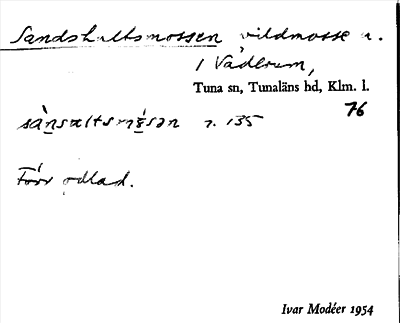 Sandshultsmossen vildmosse u.
1 Väderum,
Tuna sn, Tunaläns hd, Klm. l.
76
n. 135
Förr odlad.
Ivar Modéer 1954